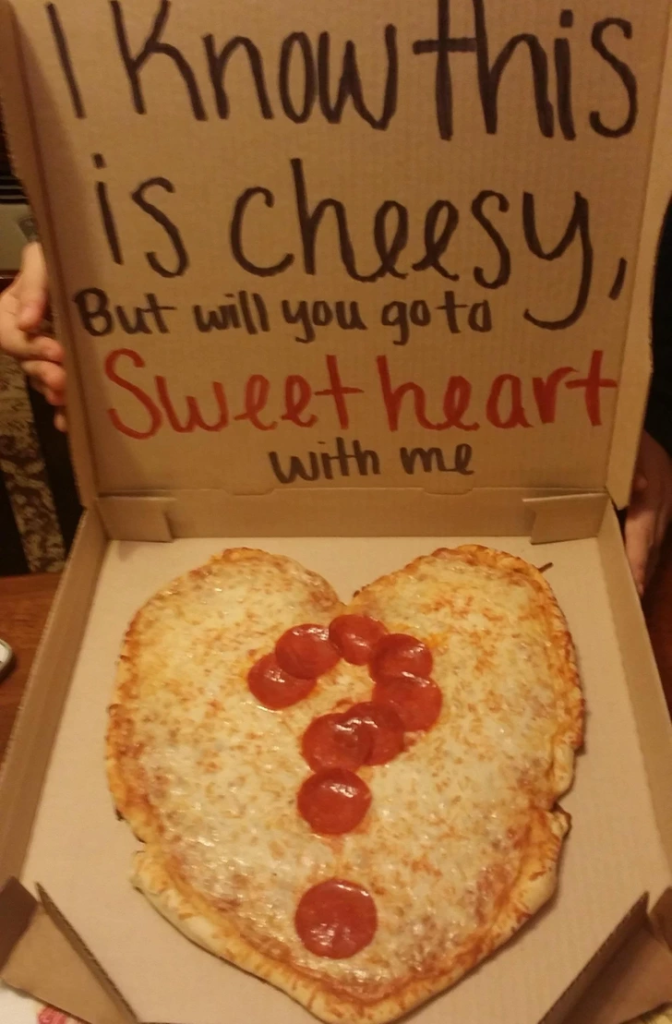 I Know this
is cheesy,
But will you go to
Sweetheart
with me
?